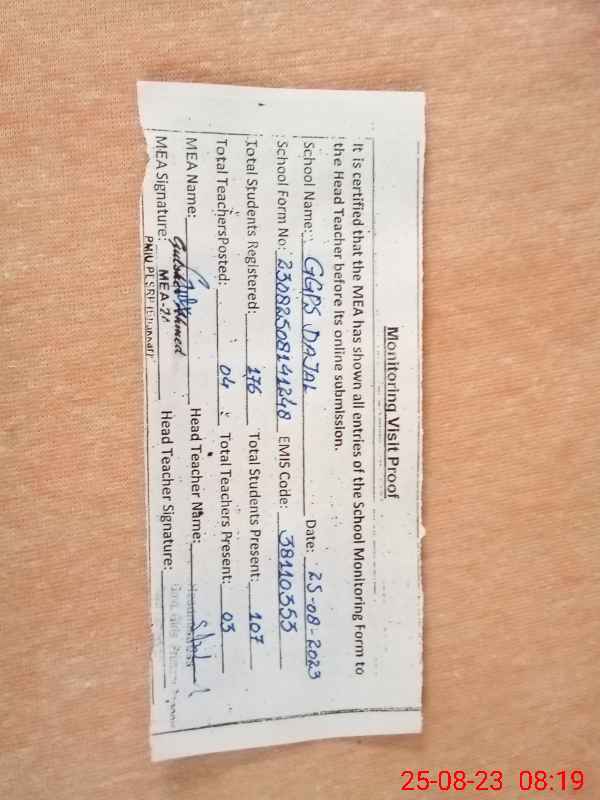 Monitoring Visit Proof
It is certified that the MEA has shown all entries of the School Monitoring Form to
the Head Teacher before its online submission.
School Name: GGPS DAJAL Date: 25-08-2023
School Form No: 23082508141248 EMIS Code: 38110353
Total Students Registered: 176 Total Students Present: 107
Total TeachersPosted: 04 Total Teachers Present: 03
MEA Name: Head Teacher Name:
MEA Signature: Ahmed MEA-21 Head Teacher Signature:
25-08-23 08:19